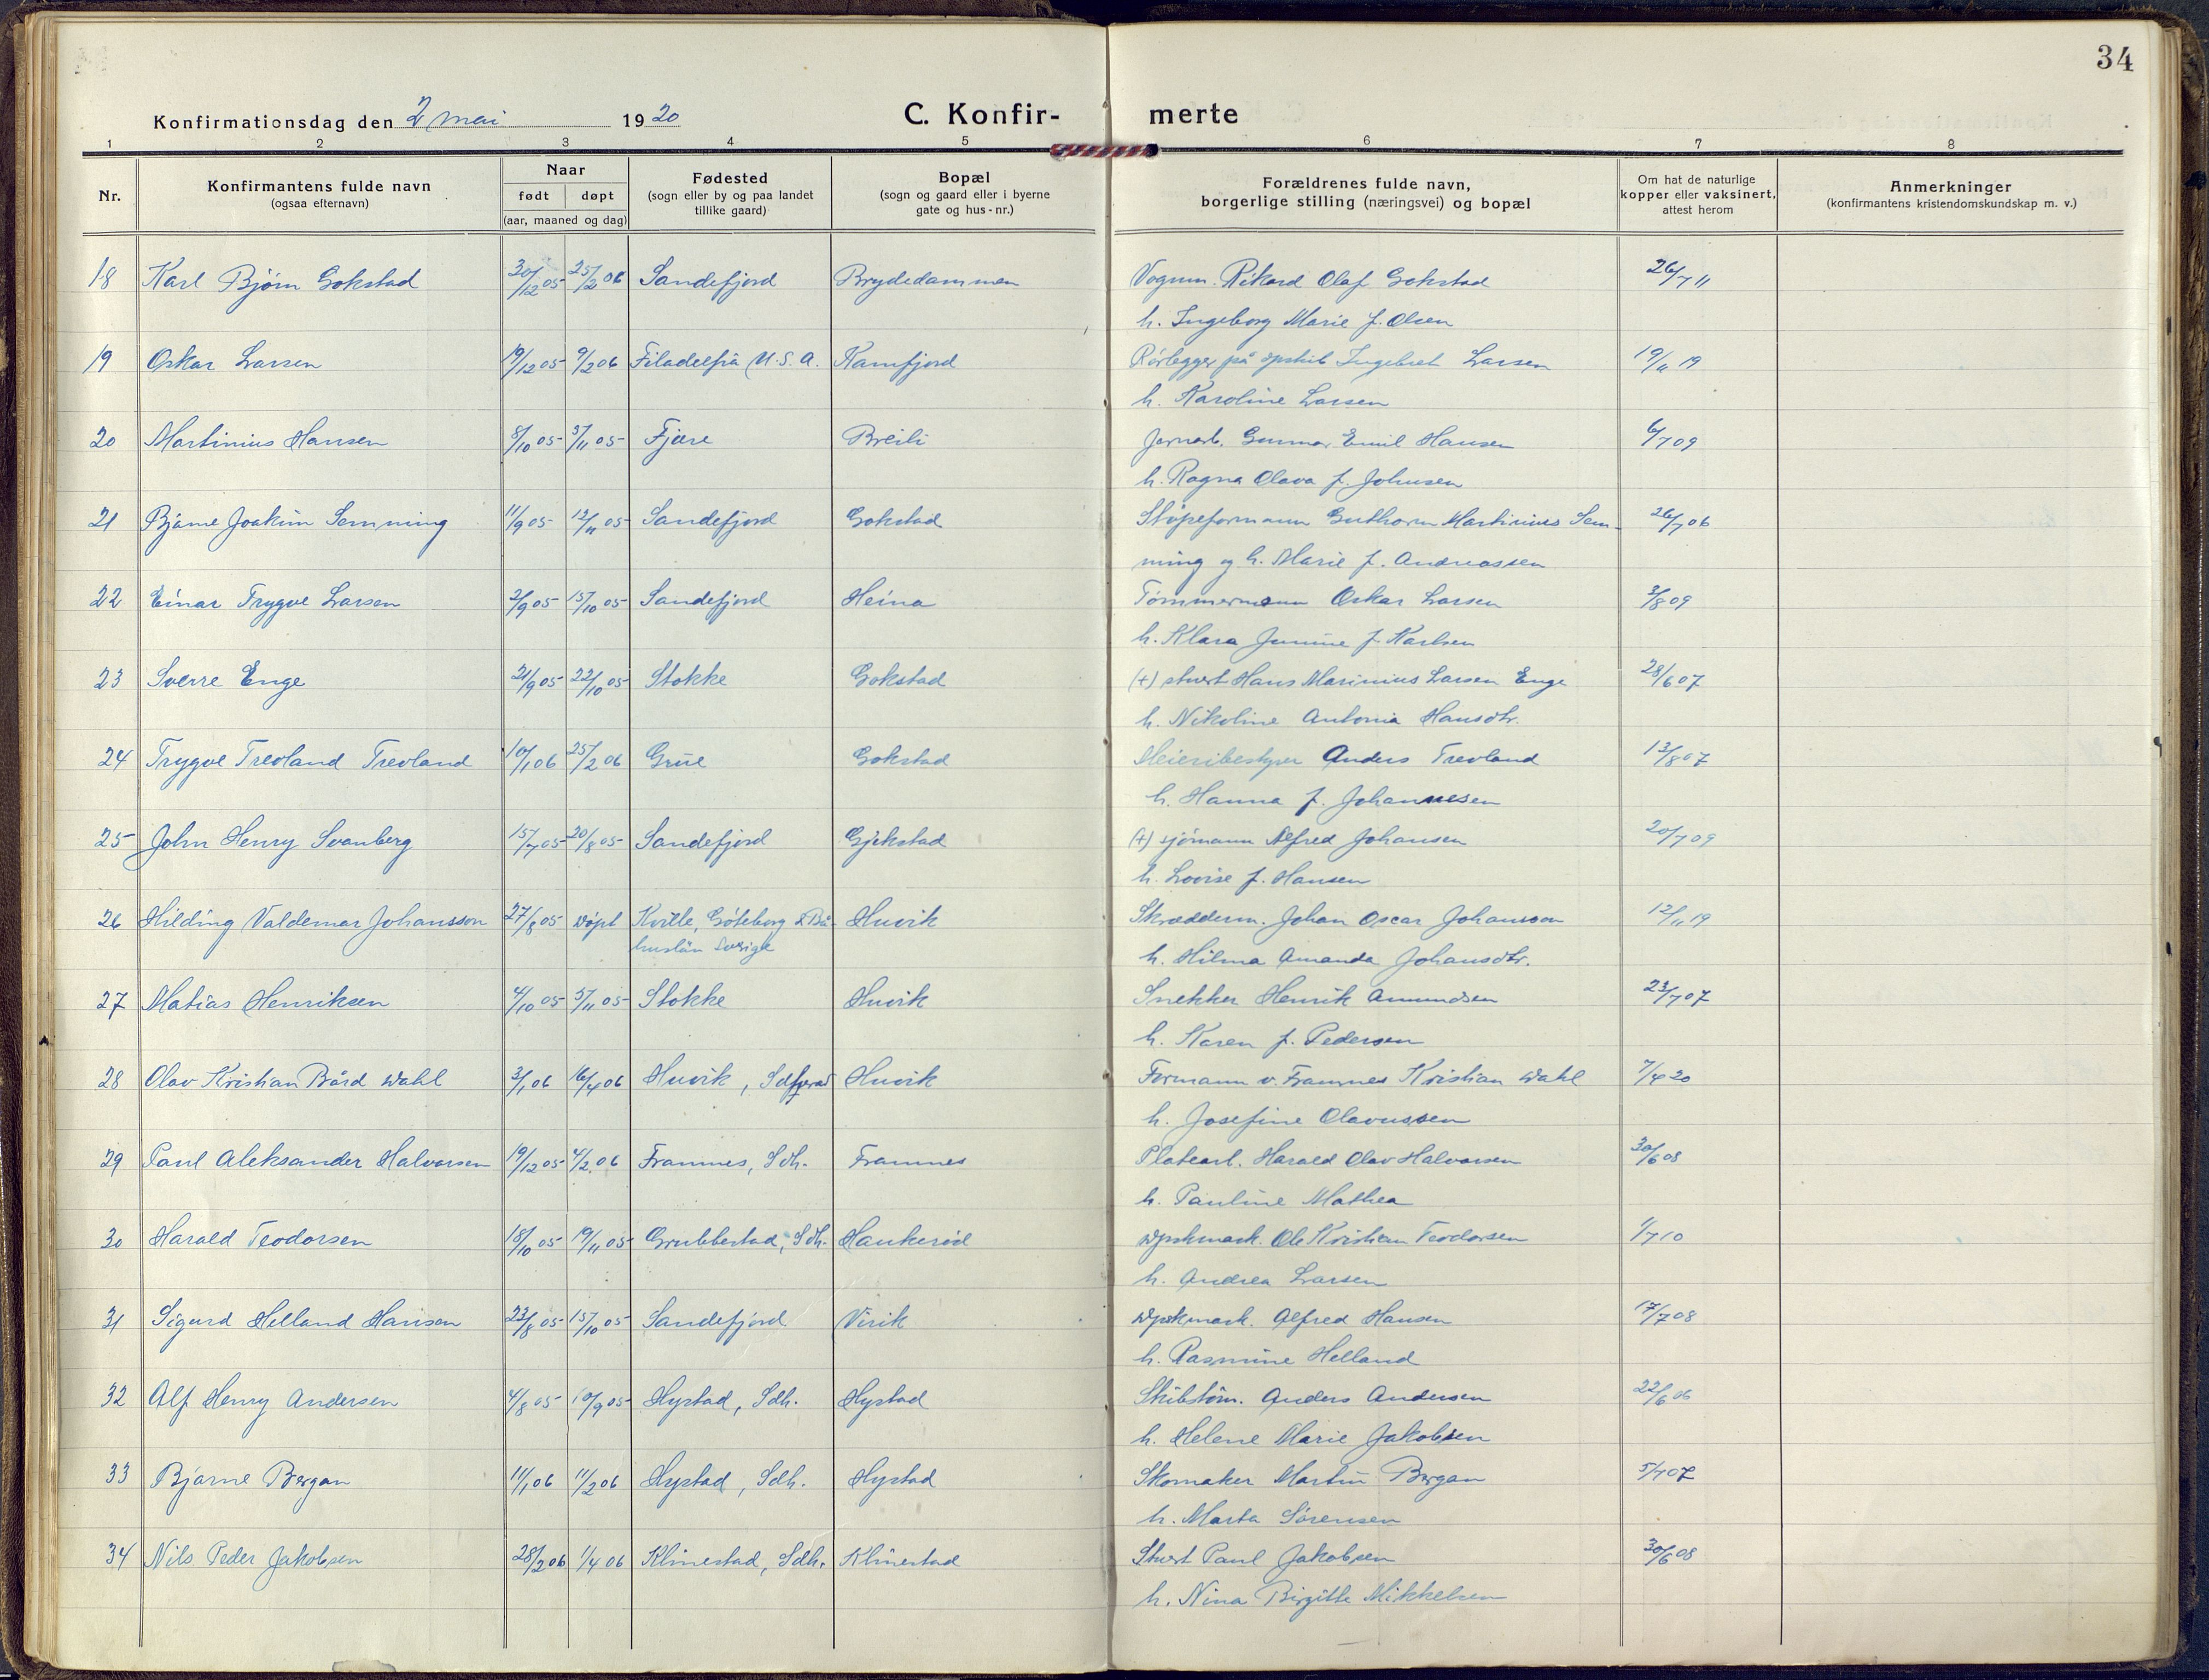 34
Konfirmationsdag den 2 mai 1920 C. Konfir- merte
1 2 3 4 5 6 7 8
Nr. Konfirmantens fulde navn (ogsaa efternavn) Naar født døpt (aar, maaned og dag) Fødested (sogn eller by og paa landet tillike gaard) Bopæl (sogn og gaard eller i byerne gate og hus-nr.) Forældrenes fulde navn, borgerlige stilling (næringsvei) og bopæl Om hat de naturlige kopper eller vaksinert, attest herom Anmerkninger (konfirmantens kristendomskundskap m. v.)
18 Karl Bjørn Gokstad 30/12 05 25/2 06 Sandefjord Brydedammen Vognm. Rikard Olaf Gokstad 26/7 11
h. Ingeborg Marie f. Olsen
19 Oskar Larsen 19/12 05 9/2 06 Filadelfia (U.S.A. Kamfjord Rørlegger på Ingebret Larsen 19/11 19
h. Karoline Larsen
20 Martinius Hansen 8/10 05 5/11 05 Fjære Breili Jernarb. Gunnar Emil Hansen 6/7 09
h. Ragna Olava f. Johnsen
21 Bjarne Joakim Semming 11/9 05 12/11 05 Sandefjord Gokstad Støpeformann Guthorm Martinius Sem- 26/7 06
ming og h. Marie f. Andreassen
22 Einar Trygve Larsen 2/9 05 15/10 05 Sandefjord Heina Tømmermann Oskar Larsen 3/8 09
h. Klara Jumine f. Karlsen
23 Sverre Enge 21/9 05 22/10 05 Stokke Gokstad (+) stuert Hans Marinius Larsen Enge 28/6 07
h. Nikoline Antonia Hansdtr.
24 Trygve Trevland Trevland 10/1 06 25/2 06 Grue Gokstad Meieribestyrer Anders Trevland 13/8 07
h. Hanna f. Johannesen
25 John Henry Svanberg 15/7 05 20/8 05 Sandefjord Gjekstad (+) sjømann Alfred Johansen 20/7 09
h. Lovise f. Hansen
26 Hilding Valdemar Johansson 27/8 05 døpt Kville, Göteborg & Bå- Huvik Skræderm. Johan Oscar Johansson 12/11 19
huslän Sverige h. Hilma Amanda Johansdtr.
27 Matias Henriksen 4/10 05 5/11 05 Stokke Huvik Snekker Henrik Amundsen 23/7 07
h. Karen f. Pedersen
28 Olav Kristian Bård Dahl 3/1 06 16/4 06 Huvik, Sdfjord Huvik Formann v. Framnes Kristian Dahl 7/4 20
h. Josefine Olavussen
29 Paul Aleksander Halvorsen 19/12 05 4/2 06 Framnes, Sdh. Framnes Platearb. Harald Olav Halvorsen 30/6 08
h. Pauline Mathea
30 Harald Teodorsen 18/10 05 19/11 05 Grubbestad, Sdh. Haukerød Dpskmask. Ole Kristian Teodorsen 1/7 10
h. Andrea Larsen
31 Sigurd Helland Hansen 23/8 05 15/10 05 Sandefjord Virik Dpskmask. Alfred Hansen 17/7 08
h. Rasmine Helland
32 Alf Henry Andersen 4/8 05 10/9 05 Hystad, Sdh. Hystad Skibstøm. Anders Andersen 22/6 06
h. Helene Marie Jakobsen
33 Bjarne Bergan 11/1 06 11/2 06 Hystad, Sdh. Hystad Skomaker Martin Bergan 5/7 07
h. Marta Sørensen
34 Nils Peder Jakobsen 28/2 06 1/4 06 Klinestad, Sdh. Klinestad Stuert Paul Jakobsen 30/6 08
h. Nina Birgitte Mikkelsen